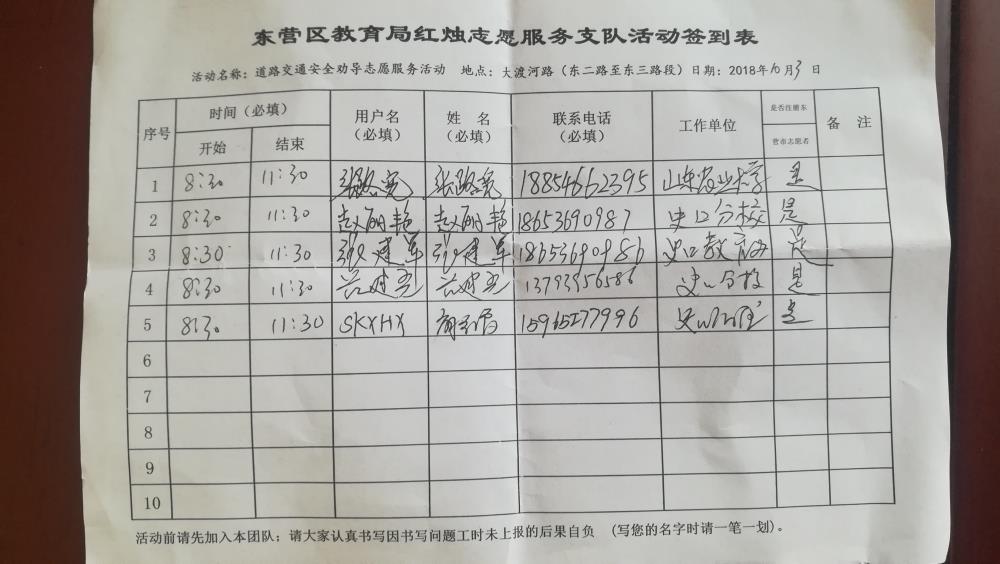 东营区教育局红烛志愿服务支队活动签到表
活动名称：道路交通安全劝导志愿服务活动 地点：大渡河路（东二路至东三路段）日期：2018年10月3日
序号 时间（必填） 用户名（必填） 姓 名（必填） 联系电话（必填） 工作单位 是否注册东营市志愿者 备 注
开始 结束
1 8:30 11:30 张路亮 张路亮 18854662395 山东农业大学 是
2 8:30 11:30 赵丽艳 赵丽艳 18653690987 史口分校 是
3 8:30 11:30 张建军 张建军 18653690986 史口教育办 是
4 8:30 11:30 13793956586 史口分校 是
5 8:30 11:30 SKXHX 15965277996 是
6
7
8
9
10
活动前请先加入本团队；请大家认真书写因书写问题工时未上报的后果自负 （写您的名字时请一笔一划）。